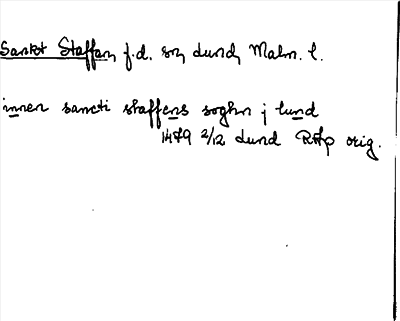 Sankt Staffan f.d. sn, Lund, Malm. l.
innen sancti staffens soghn j lund
1479 2/12 Lund RAp orig.